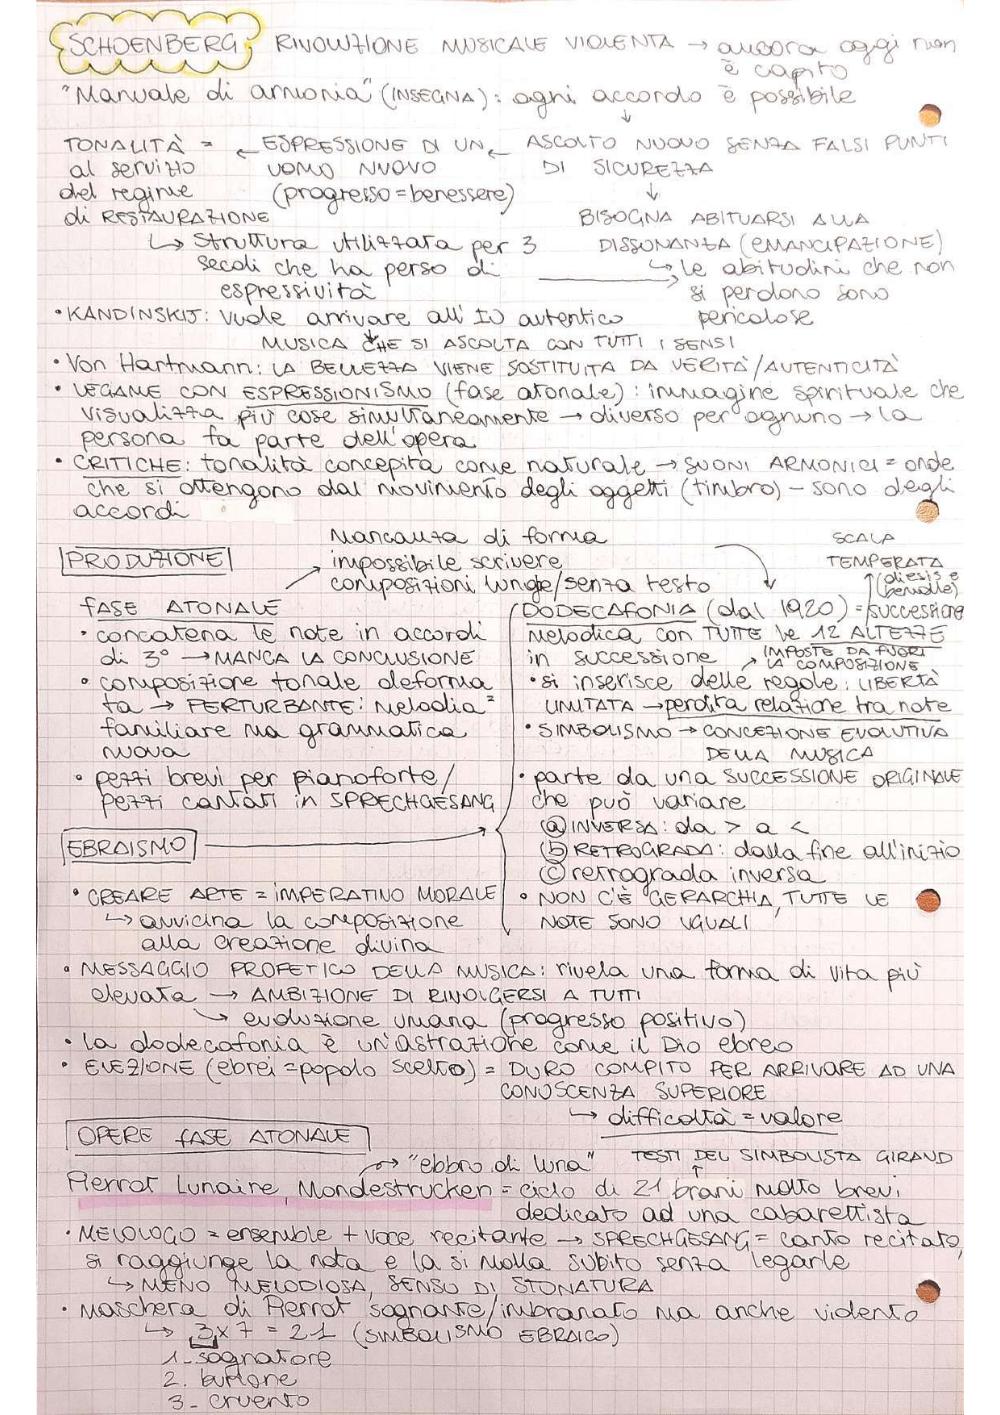 SCHOENBERG RIVOLUZIONE MUSICALE VIOLENTA → ancora oggi non
è capito
"Manuale di armonia" (INSEGNA): ogni accordo è possibile
TONALITÀ = ← ESPRESSIONE DI UN ← ASCOLTO NUOVO SENZA FALSI PUNTI
al servizio UOMO NUOVO DI SICUREZZA
del regime (progresso = benessere) ↓
di RESTAURAZIONE BISOGNA ABITUARSI ALLA
↳ struttura utilizzata per 3 DISSONANZA (EMANCIPAZIONE)
secoli che ha perso di → ↳ le abitudini che non
espressività si perdono sono
• KANDINSKIJ: vuole arrivare all'IO autentico pericolose
MUSICA CHE SI ASCOLTA CON TUTTI I SENSI
• Von Hartmann: LA BELLEZZA VIENE SOSTITUITA DA VERITÀ/AUTENTICITÀ
• LEGAME CON ESPRESSIONISMO (fase atonale): immagine spirituale che
visualizza più cose simultaneamente → diverso per ognuno → la
persona fa parte dell'opera
• CRITICHE: tonalità concepita come naturale → SUONI ARMONICI = onde
che si ottengono dal movimento degli oggetti (timbro) - sono degli
accordi
Mancanza di forma
impossibile scrivere
composizioni lunghe/senza testo
SCALA
TEMPERATA
(diesis e
bemolle)
PRODUZIONE
FASE ATONALE
• concatena le note in accordi
di 3° → MANCA LA CONCLUSIONE
• composizione tonale deforma
ta → PERTURBANTE: melodia =
familiare ma grammatica
nuova
• pezzi brevi per pianoforte/
pezzi cantati in SPRECHGESANG
DODECAFONIA (dal 1920) = successione
melodica con TUTTE le 12 ALTEZZE
in successione
IMPOSTE DA FUORI
LA COMPOSIZIONE
• si inserisce delle regole: LIBERTÀ
LIMITATA → perdita relazione tra note
• SIMBOLISMO → CONCEZIONE EVOLUTIVA
DELLA MUSICA
• parte da una SUCCESSIONE ORIGINALE
che può variare
ⓐ INVERSA: da > a <
ⓑ RETROGRADA: dalla fine all'inizio
ⓒ retrograda inversa
• NON C'È GERARCHIA, TUTTE LE
NOTE SONO UGUALI
EBRAISMO
• CREARE ARTE = IMPERATIVO MORALE
↳ avvicina la composizione
alla creazione divina
• MESSAGGIO PROFETICO DELLA MUSICA: rivela una forma di vita più
elevata → AMBIZIONE DI RIVOLGERSI A TUTTI
↳ evoluzione umana (progresso positivo)
• la dodecafonia è un'astrazione come il Dio ebreo
• ELEZIONE (ebrei = popolo scelto) = DURO COMPITO PER ARRIVARE AD UNA
CONOSCENZA SUPERIORE
↳ difficoltà = valore
OPERE FASE ATONALE
→ "ebbro di luna" TESTI DEL SIMBOLISTA GIRAUD
Pierrot Lunaire, Mondestrucken = ciclo di 21 brani molto brevi,
dedicato ad una cabarettista
• MELOLOGO = ensemble + voce recitante → SPRECHGESANG = canto recitato,
si raggiunge la nota e la si molla subito senza legarle
↳ MENO MELODIOSA, SENSO DI STONATURA
• Maschera di Pierrot sognante/imbranato ma anche violento
↳ 3 x 7 = 21 (SIMBOLISMO EBRAICO)
1. sognatore
2. burlone
3. cruento